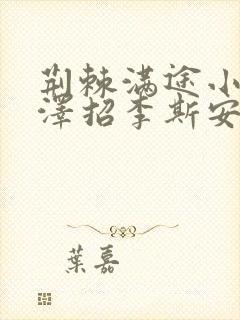 荆棘满途小
澤招李斯安
葉嘉